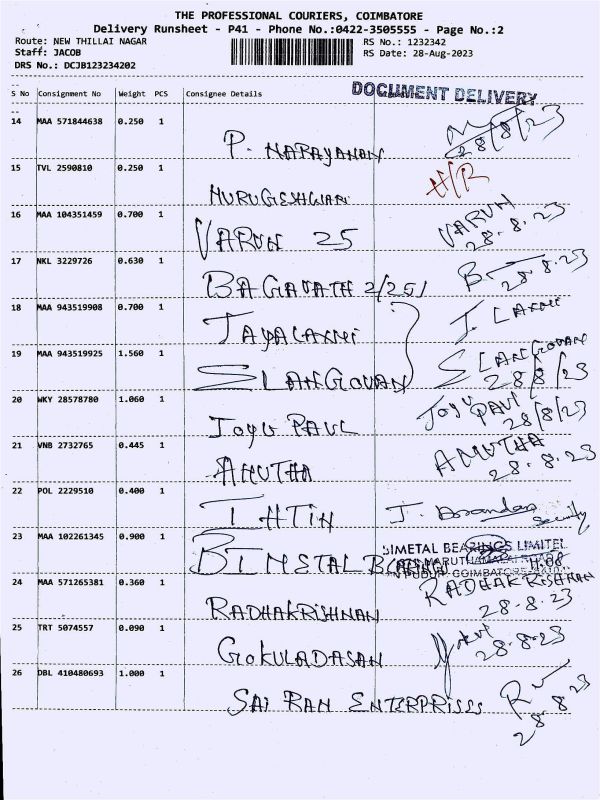 THE PROFESSIONAL COURIERS, COIMBATORE
Delivery Runsheet - P41 - Phone No.:0422-3505555 - Page No.:2
Route: NEW THILLAI NAGAR RS No.: 1232342
Staff: JACOB RS Date: 28-Aug-2023
DRS No.: DCJB123234202
S No Consignment No Weight PCS Consignee Details DOCUMENT DELIVERY
14 MAA 571844638 0.250 1
P. NARAYANAN 28/8/23
15 TVL 2590810 0.250 1
MURUGESHWARI H/R
16 MAA 104351459 0.700 1
VARUN 25 VARUN 28.8.23
17 NKL 3229726 0.630 1
BAGAVATH 2/251 28.8.23
18 MAA 943519908 0.700 1
JAYALAXMI J. LAXMI
19 MAA 943519925 1.560 1
SLANGOVAN SLANGOVAN 28/8/23
20 WKY 28578780 1.060 1
JOYU PAUL JOYU PAUL 28/8/23
21 VNB 2732765 0.445 1
AMUTHA AMUTHA 28.8.23
22 POL 2229510 0.400 1
Security
23 MAA 102261345 0.900 1
BIMETAL BEARINGS LIMITED
BIMETAL COIMBATORE
24 MAA 571265381 0.360 1
RADHAKRISHNAN RADHAKRISHNAN 28.8.23
25 TRT 5074557 0.090 1
GOKULADASAN 28.8.23
26 DBL 410480693 1.000 1
SAI RAM ENTERPRISES 28.8.23